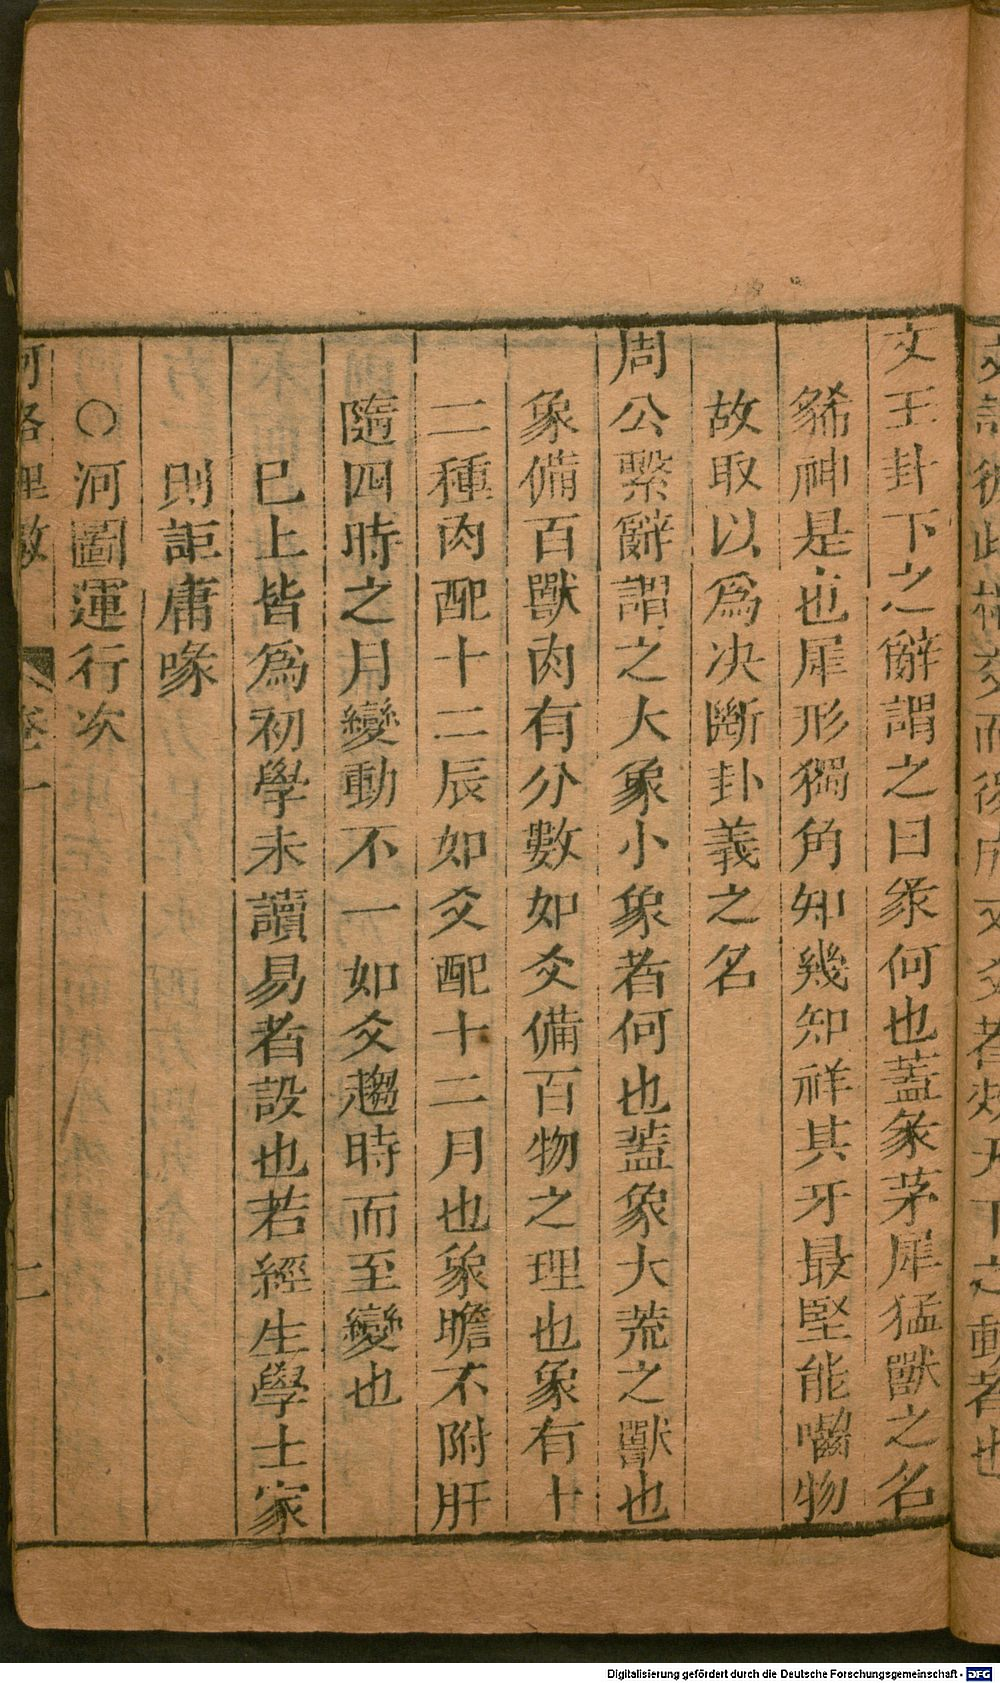 文王卦下之辭謂之曰彖何也蓋彖茅犀猛獸之名
豨神是也犀形獨角知幾知祥其牙最堅能嚙物
故取以爲决斷卦義之名
周公繫辭謂之大象小象者何也蓋象大荒之獸也
象備百獸肉有分數如爻備百物之理也象有十
二種肉配十二辰如爻配十二月也象膽不附肝
隨四時之月變動不一如爻趨時而至變也
已上皆爲初學未讀易者設也若經生學士家
則詎庸喙
○河圖運行次
河洛理數 卷一 二
Digitalisierung gefördert durch die Deutsche Forschungsgemeinschaft - DFG